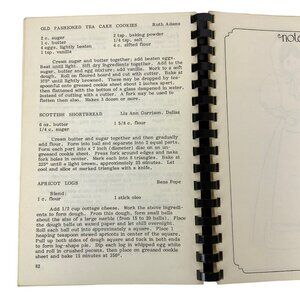 OLD FASHIONED TEA CAKE COOKIES Ruth Adams
2 c. sugar 2 tsp. baking powder
1 c. butter 1/4 tsp. salt
4 eggs, lightly beaten 4 c. sifted flour
1 tsp. vanilla
Cream sugar and butter together; add beaten eggs.
Beat until light. Sift dry ingredients together. Add to the
sugar, butter and egg mixture; add vanilla. Work to a soft
dough. Roll on floured board and cut with cutter. Bake at
375° until lightly browned. These may be dropped by
teaspoonful onto greased cookie sheet about 2 inches apart
then flattened with the bottom of a glass dampened in water,
instead of cutting with a cutter. A fork may be used to
flatten them also. Makes 3 dozen or more.
SCOTTISH SHORTBREAD Liz Ann Garrison, Dallas
6 oz. butter 1 3/4 c. flour
1/4 c. sugar
Cream butter and sugar together and then gradually
add flour. Form into ball and separate into 2 equal parts.
Form each part into a 7 inch (diameter) disc on an un-
greased cookie sheet. Press fork around edges. Take a
fork holes in center. Mark each into 8 triangles. Bake at
325° until a light brown, approximately 25 minutes. Let
cool and slice at marked triangles with a knife.
APRICOT LOGS Rena Pope
Blend:
1 c. flour 1 stick oleo
Add 1/2 cup cottage cheese. Work the above ingredi-
ents to form dough. From this dough, form small balls
about the size of a large marble (from 15 to 20 balls).
Place the dough balls on waxed paper and chill
Roll each ball out into approximately a square. Place 1
heaping teaspoon stewed apricots in center of the square.
Pull up both sides of dough square and tuck in both ends
to form log-shape pie. Dip each log in whipped egg white
and roll in crushed pecans, then place on greased cookie
sheet and bake 15 minutes at 350°.
82
note